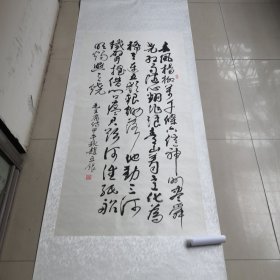 春风杨柳万千条六亿神州尽舜
尧红雨随心翻作浪青山着意化为
桥天连五岭银锄落地动三河
铁臂摇借问瘟君欲何往纸船
明烛照天烧 毛主席诗甲午秋